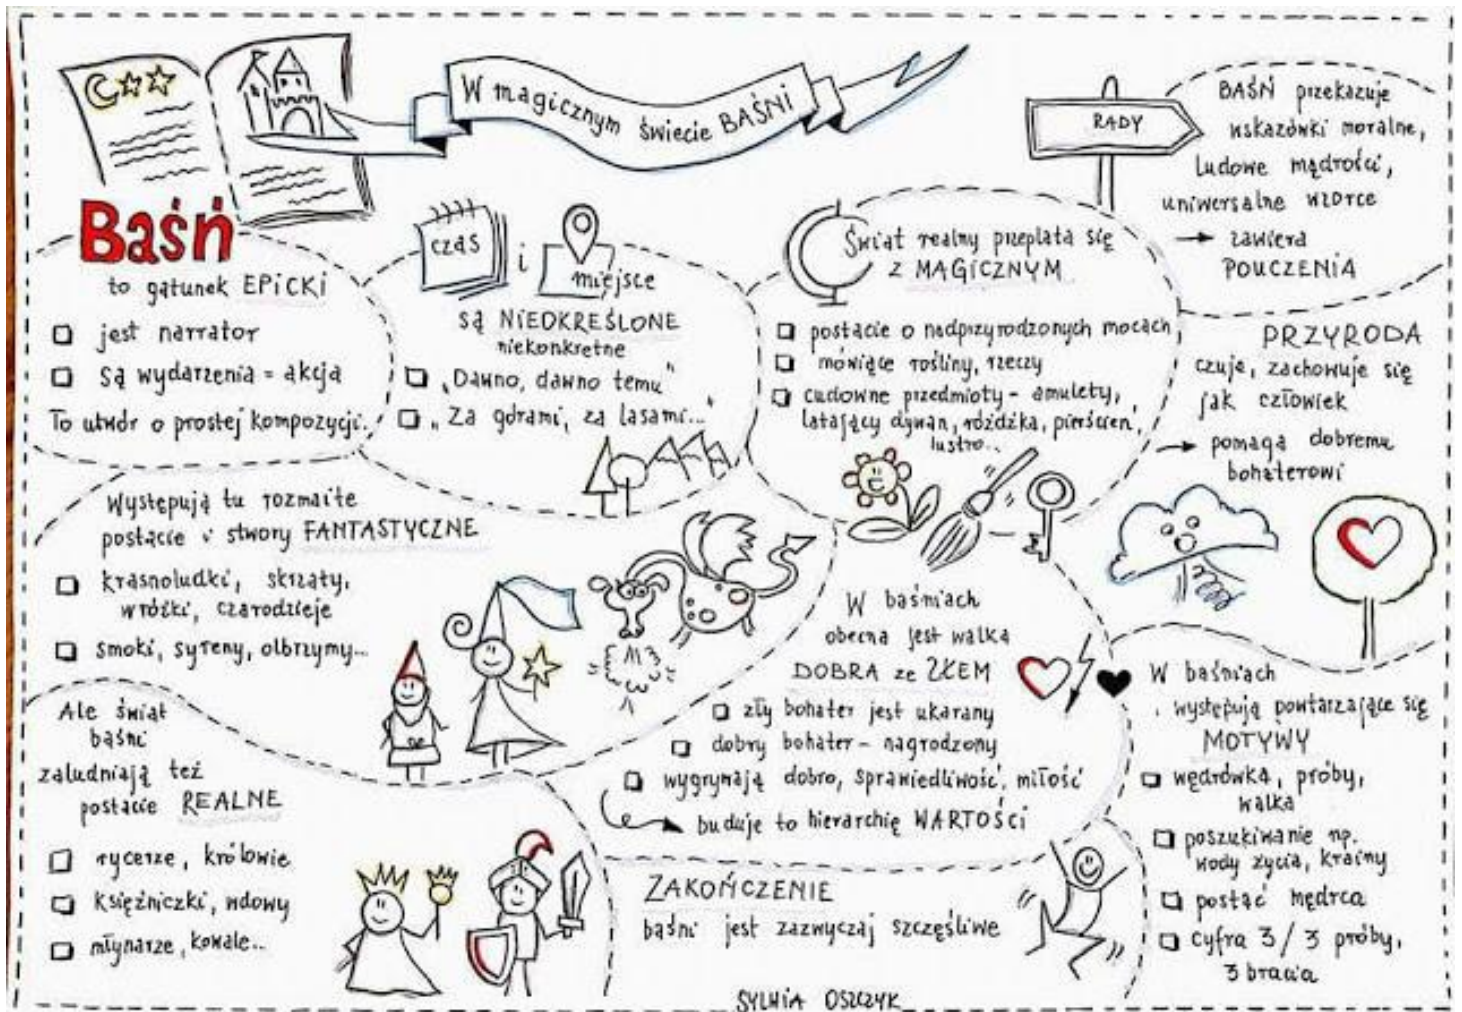 W magicznym świecie BAŚNI
Baśń
to gatunek EPiCKi
jest narrator
są wydarzenia = akcja
To utwór o prostej kompozycji.
czas
i
miejsce
są NIEOKREŚLONE
niekonkretne
„Dawno, dawno temu"
„Za górami, za lasami..."
Świat realny przeplata się
z MAGICZNYM
postacie o nadprzyrodzonych mocach
mówiące rośliny, rzeczy
cudowne przedmioty - amulety,
latający dywan, różdżka, pierścień,
lustro...
RADY
BAŚŃ przekazuje
wskazówki moralne,
ludowe mądrości,
uniwersalne wzorce
→ zawiera
POUCZENIA
PRZYRODA
czuje, zachowuje się
jak człowiek
→ pomaga dobremu
bohaterowi
Występują tu rozmaite
postacie i stwory FANTASTYCZNE
krasnoludki, skrzaty,
wróżki, czarodzieje
smoki, syreny, olbrzymy...
Ale świat
baśni
zaludniają też
postacie REALNE
rycerze, królowie
księżniczki, wdowy
młynarze, kowale...
W baśniach
obecna jest walka
DOBRA ze ZŁEM
zły bohater jest ukarany
dobry bohater - nagrodzony
wygrywają dobro, sprawiedliwość, miłość
buduje to hierarchię WARTOŚCI
ZAKOŃCZENIE
baśni jest zazwyczaj szczęśliwe
W baśniach
występują powtarzające się
MOTYWY
wędrówka, próby,
walka
poszukiwanie np.
wody życia, krainy
postać mędrca
cyfra 3 / 3 próby,
3 bracia
SYLWIA OSZCZYK